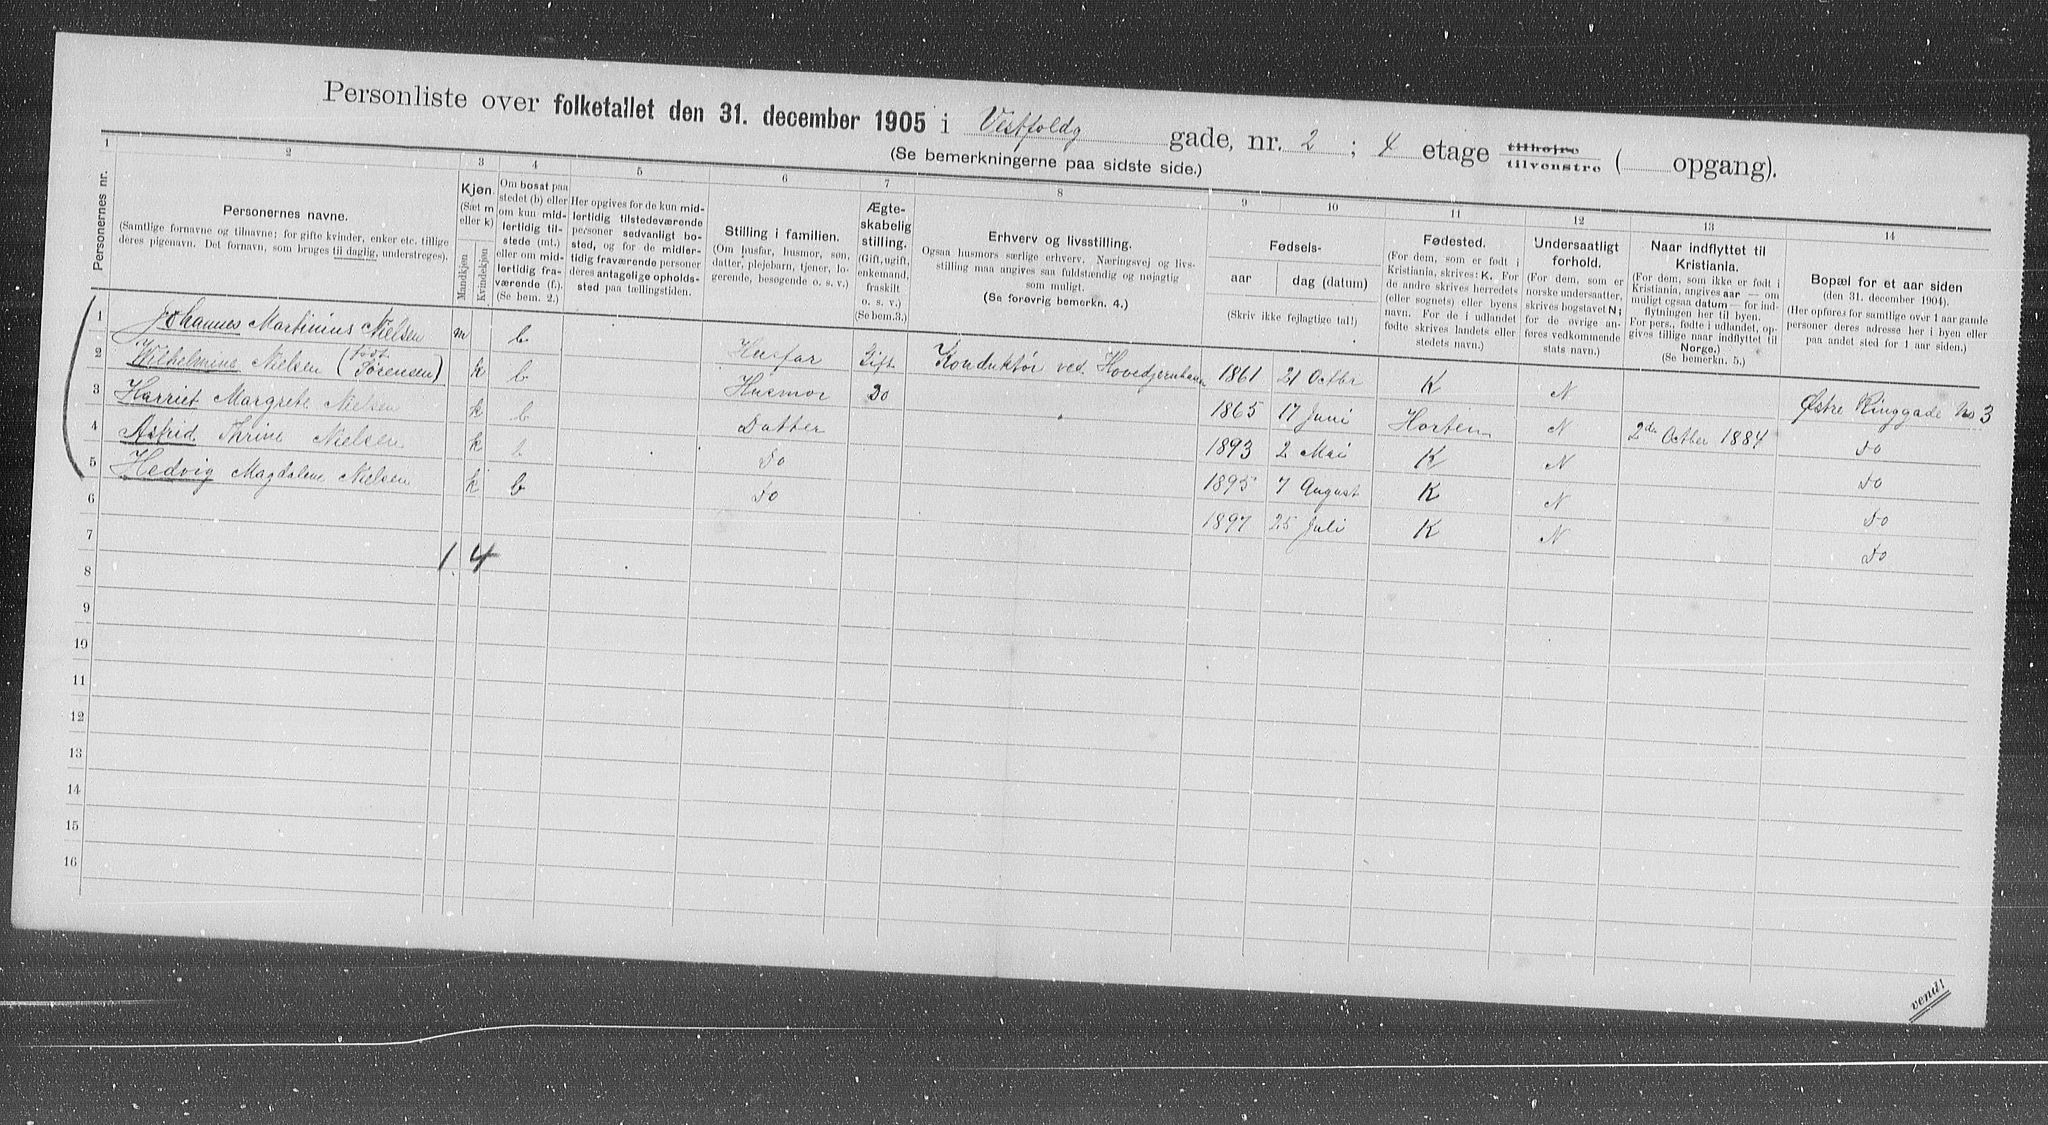 Personliste over folketallet den 31. december 1905 i Vestfoldg gade, nr. 2 ; 4 etage tilhøjre tilvenstre ( opgang).
(Se bemerkningerne paa sidste side.)
1 2 3 4 5 6 7 8 9 10 11 12 13 14
Personernes nr.
Personernes navne.
(Samtlige fornavne og tilnavne; for gifte kvinder, enker etc. tillige
deres pigenavn. Det fornavn, som bruges til daglig, understreges).
Kjøn.
(Sæt m
eller k)
Mandkjøn
Kvindekjøn
Om bosat paa
stedet (b) eller
om kun mid-
lertidig til-
stede (mt.)
eller om mid-
lertidig fra-
værende (f.).
(Se bem. 2.)
Her opgives for de kun mid-
lertidig tilstedeværende
personer sedvanlig bo-
sted, og for de midler-
tidig fraværende personer
deres antagelige opholds-
sted paa tællingstiden.
Stilling i familien.
(Om husfar, husmor, søn,
datter, plejebarn, tjener, lo-
gerende, besøgende o. s. v.)
Ægte-
skabelig
stilling.
(Gift, ugift,
enkemand,
fraskilt
o. s. v.)
(Se bem. 3.)
Erhverv og livsstilling.
Ogsaa husmors særlige erhverv. Næringsvej og livs-
stilling maa angives saa fuldstændig og nøjagtig
som muligt.
(Se forøvrig bemerkn. 4.)
Fødsels-
aar
dag (datum)
(Skriv ikke fejlagtige tal!)
Fødested.
(For dem, som er født i
Kristiania, skrives: K. For
de andre skrives herredets
(eller sognets) eller byens
navn. For de i udlandet
fødte skrives landets eller
stedets navn.)
Undersaatligt
forhold.
(For dem, som er
norske undersaatter,
skrives bogstavet N;
for de øvrige an-
føres vedkommende
stats navn.)
Naar indflyttet til
Kristiania.
(For dem, som ikke er født i
Kristiania, angives aar — om
muligt ogsaa datum — for ind-
flytningen her til byen.
For pers., fødte i udlandet, op-
gives tillige naar indflyttet til
Norge.)
(Se bemerkn. 5.)
Bopæl for et aar siden
(den 31. december 1904).
(Her opføres for samtlige over 1 aar gamle
personer deres adresse her i byen eller
paa andet sted for 1 aar siden.)
1 Johannes Martinius Nielsen m b Husfar Gift Konduktør ved Hovedjernbanen 1861 21 Octbr K N Østre Ringgade No 3
2 Wilhelmine Nielsen (født Sørensen) k b Husmor Do 1865 17 Juni Horten N 2den Octber 1884 Do
3 Harriet Margrete Nielsen k b Datter 1893 2 Mai K N Do
4 Astrid Thrine Nielsen k b Do 1895 7 August K N Do
5 Hedvig Magdalene Nielsen k b Do 1897 25 Juli K N Do
6
7
1. 4
8
9
10
11
12
13
14
15
16
vend!